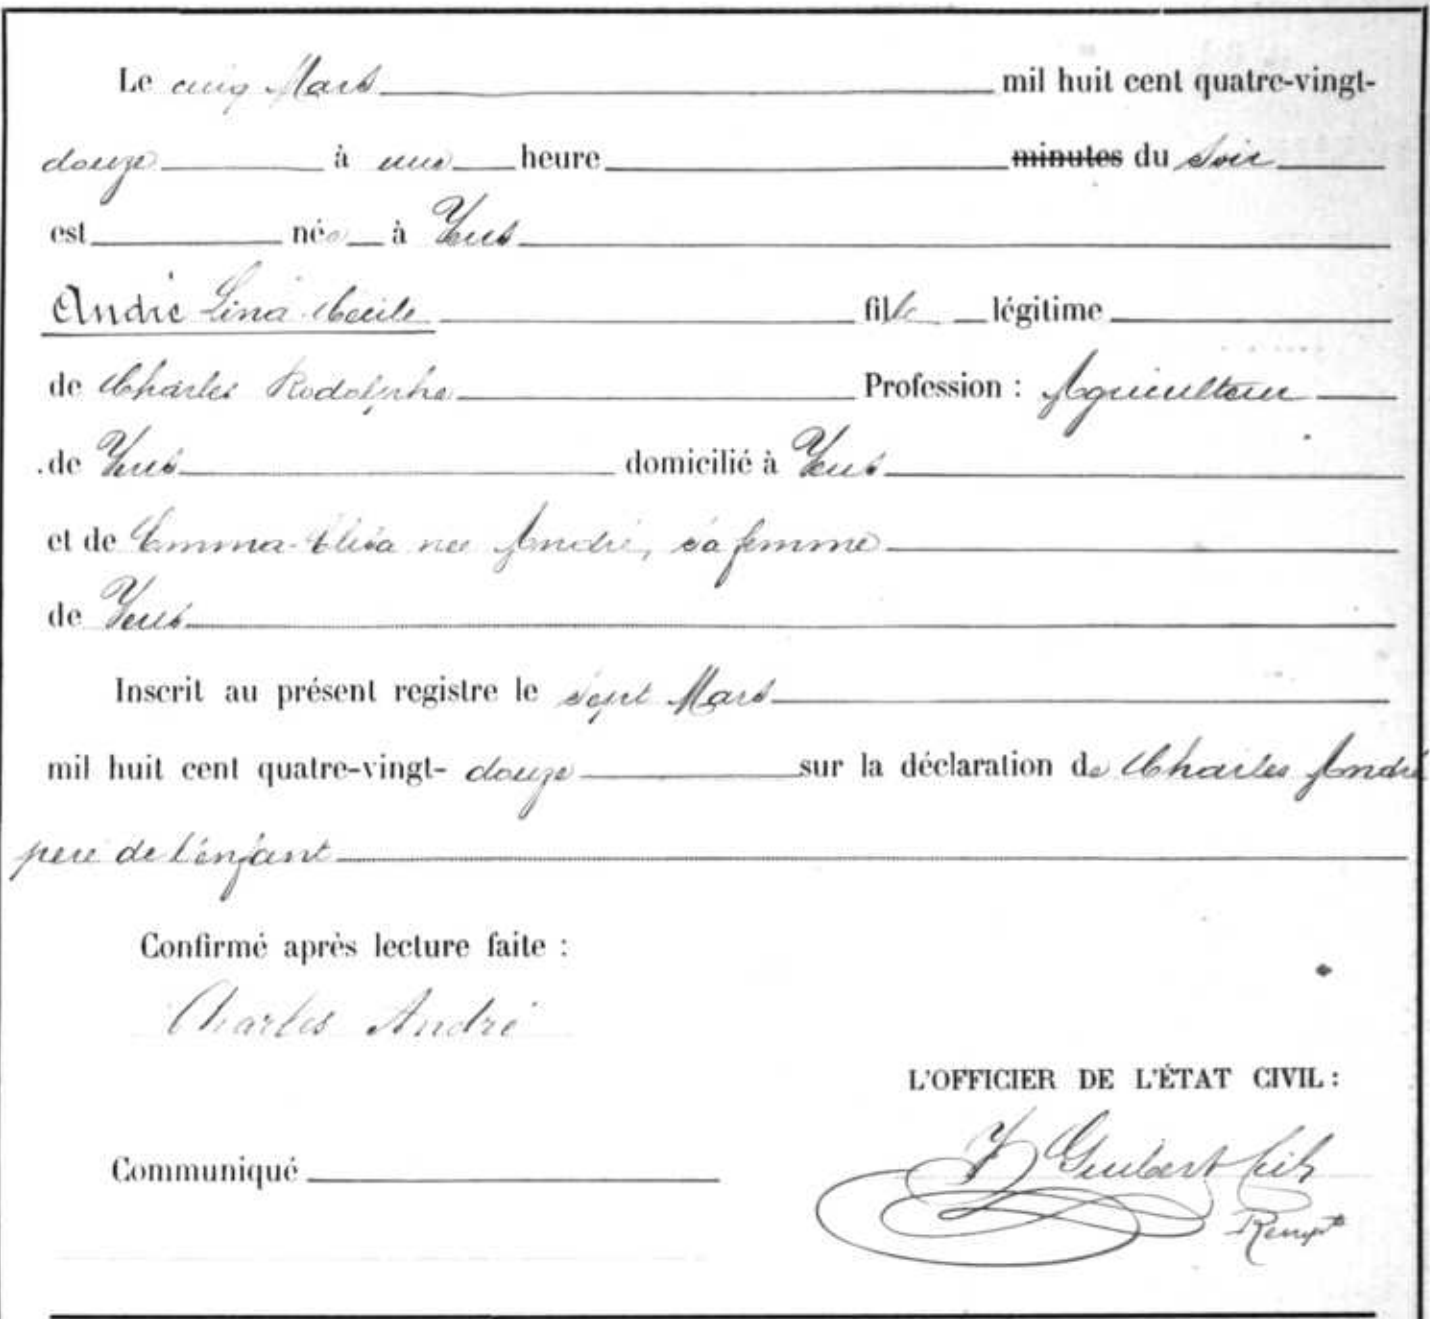 Le cinq Mars mil huit cent quatre-vingt-
douze à une heure minutes du soir
est née à Yens
André Lina Cécile fille légitime
de Charles Rodolphe Profession : Agriculteur
de Yens domicilié à Yens
et de Emma-Elisa née André, sa femme
de Yens
Inscrit au présent registre le sept Mars
mil huit cent quatre-vingt- douze sur la déclaration de Charles André
père de l'enfant
Confirmé après lecture faite :
Charles André
L'OFFICIER DE L'ÉTAT CIVIL :
Communiqué
Guibert fils
Rempt